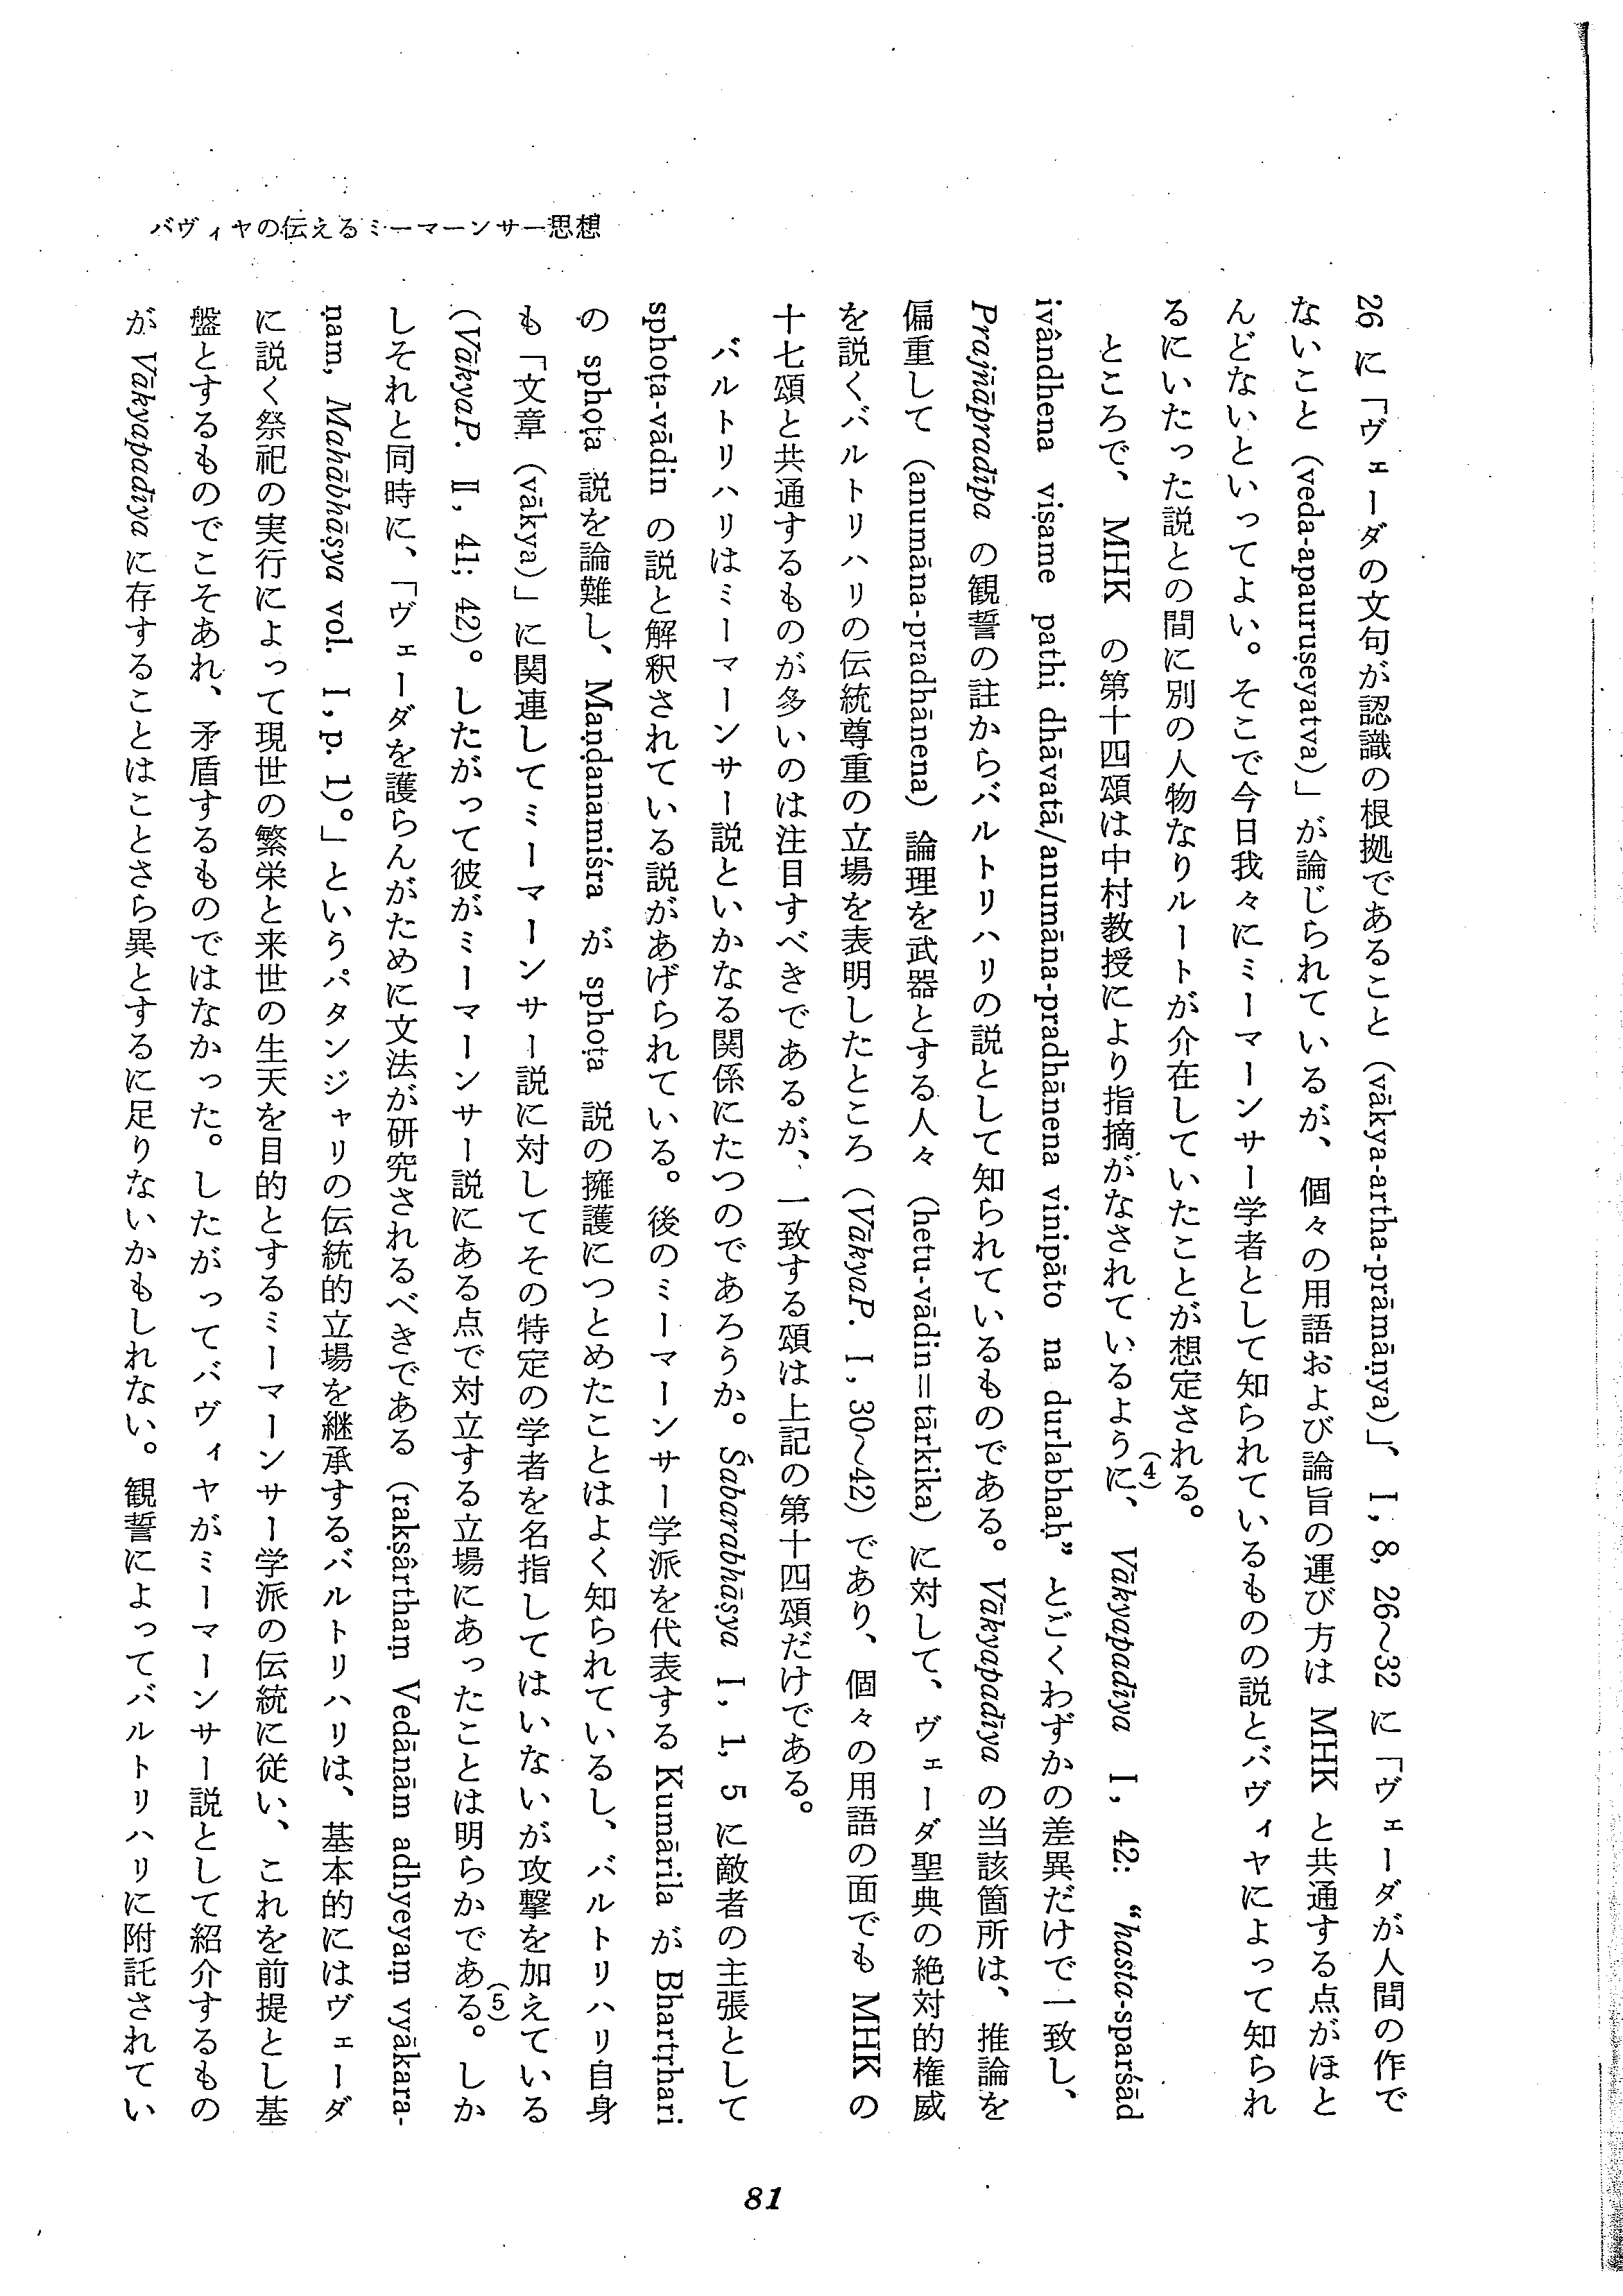 バヴィヤの伝えるミーマーンサー思想
26 に「ヴェーダの文句が認識の根拠であること (vākya-artha-prāmāṇya)」、I, 8, 26〜32 に「ヴェーダが人間の作で
ないこと (veda-apauruṣeyatva)」が論じられているが、個々の用語および論旨の運び方は MHK と共通する点がほと
んどないといってよい。そこで今日我々にミーマーンサー学者として知られているものの説とバヴィヤによって知られ
るにいたった説との間に別の人物なりルートが介在していたことが想定される。
ところで、MHK の第十四頌は中村教授により指摘がなされているように、(4) Vākyapadīya I, 42: “hasta-sparśād
ivândhena viṣame pathi dhāvatā/anumāna-pradhānena vinipāto na durlabhaḥ” とごくわずかの差異だけで一致し、
Prajñāpradīpa の観誓の註からバルトリハリの説として知られているものである。Vākyapadīya の当該箇所は、推論を
偏重して (anumāna-pradhānena) 論理を武器とする人々 (hetu-vādin=tārkika) に対して、ヴェーダ聖典の絶対的権威
を説くバルトリハリの伝統尊重の立場を表明したところ (VākyaP. I, 30〜42) であり、個々の用語の面でも MHK の
十七頌と共通するものが多いのは注目すべきであるが、一致する頌は上記の第十四頌だけである。
バルトリハリはミーマーンサー説といかなる関係にたつのであろうか。Śabarabhāṣya I, 1, 5 に敵者の主張として
sphoṭa-vādin の説と解釈されている説があげられている。後のミーマーンサー学派を代表する Kumārila が Bhartṛhari
の sphoṭa 説を論難し、Maṇḍanamiśra が sphoṭa 説の擁護につとめたことはよく知られているし、バルトリハリ自身
も「文章 (vākya)」に関連してミーマーンサー説に対してその特定の学者を名指してはいないが攻撃を加えている
(VākyaP. II, 41; 42)。したがって彼がミーマーンサー説にある点で対立する立場にあったことは明らかである。(5) しか
しそれと同時に、「ヴェーダを護らんがために文法が研究されるべきである (rakṣârthaṃ Vedānām adhyeyaṃ vyākara-
ṇam, Mahābhāṣya vol. I, p. 1)。」というパタンジャリの伝統的立場を継承するバルトリハリは、基本的にはヴェーダ
に説く祭祀の実行によって現世の繁栄と来世の生天を目的とするミーマーンサー学派の伝統に従い、これを前提とし基
盤とするものでこそあれ、矛盾するものではなかった。したがってバヴィヤがミーマーンサー説として紹介するもの
が Vākyapadīya に存することはことさら異とするに足りないかもしれない。観誓によってバルトリハリに附託されてい
81